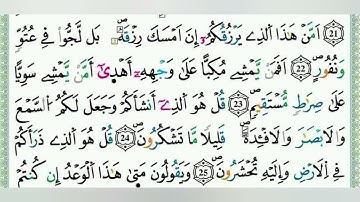 21 اَمَّنْ هَٰذَا اَلذِے يَرْزُقُكُمُۥٓ إِنَ اَمْسَكَ رِزْقَهُۥۖ بَل لَّجُّواْ فِے عُتُوّٖ
وَنُفُورٍۖ 22 اَفَمَنْ يَّمْشِے مُكِبّاً عَلَىٰ وَجْهِهِۦٓ أَهْدِىٰٓ أَمَّنْ يَّمْشِے سَوِيّاً
عَلَىٰ صِرَٰطٖ مُّسْتَقِيمٖۖ 23 قُلْ هُوَ اَلذِےٓ أَنشَأَكُمْ وَجَعَلَ لَكُمُ اُلسَّمْعَ
وَالَابْصَٰرَ وَالَافْـِٕدَةَۖ قَلِيلاٗ مَّا تَشْكُرُونَۖ 24 قُلْ هُوَ اَلذِے ذَرَأَكُمْ
فِے اِلَارْضِ وَإِلَيْهِ تُحْشَرُونَۖ 25 وَيَقُولُونَ مَتَىٰ هَٰذَا اَلْوَعْدُ إِن كُنتُمْ